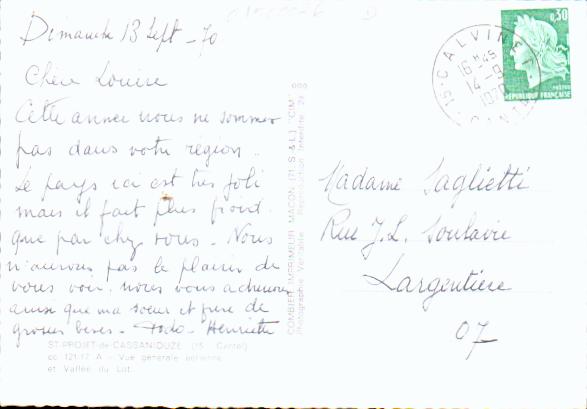 Dimanche 13 Sept - 70
Chère Louise
Cette année nous ne sommes
pas dans votre région.
Le pays ici est très joli
mais il fait plus froid
que par chez vous. Nous
n'aurons pas le plaisir de
vous voir. nous vous adressons
ainsi que ma soeur et frère de
grosses bises - Henriette
ST-PROJET-de-CASSANIOUZE (15 - Cantal)
cc. 121-17 A - Vue générale aérienne
et Vallée du Lot.
COMBIER IMPRIMEUR MACON (71-S.&L.) "CIM"
Photographie Véritable - Reproduction Interdite
15-CALVINET
16H45
14-9
1970
CANTAL
0,30
REPUBLIQUE FRANÇAISE
POSTES
Madame Saglietti
Rue J.L. Soulavie
Largentière
07